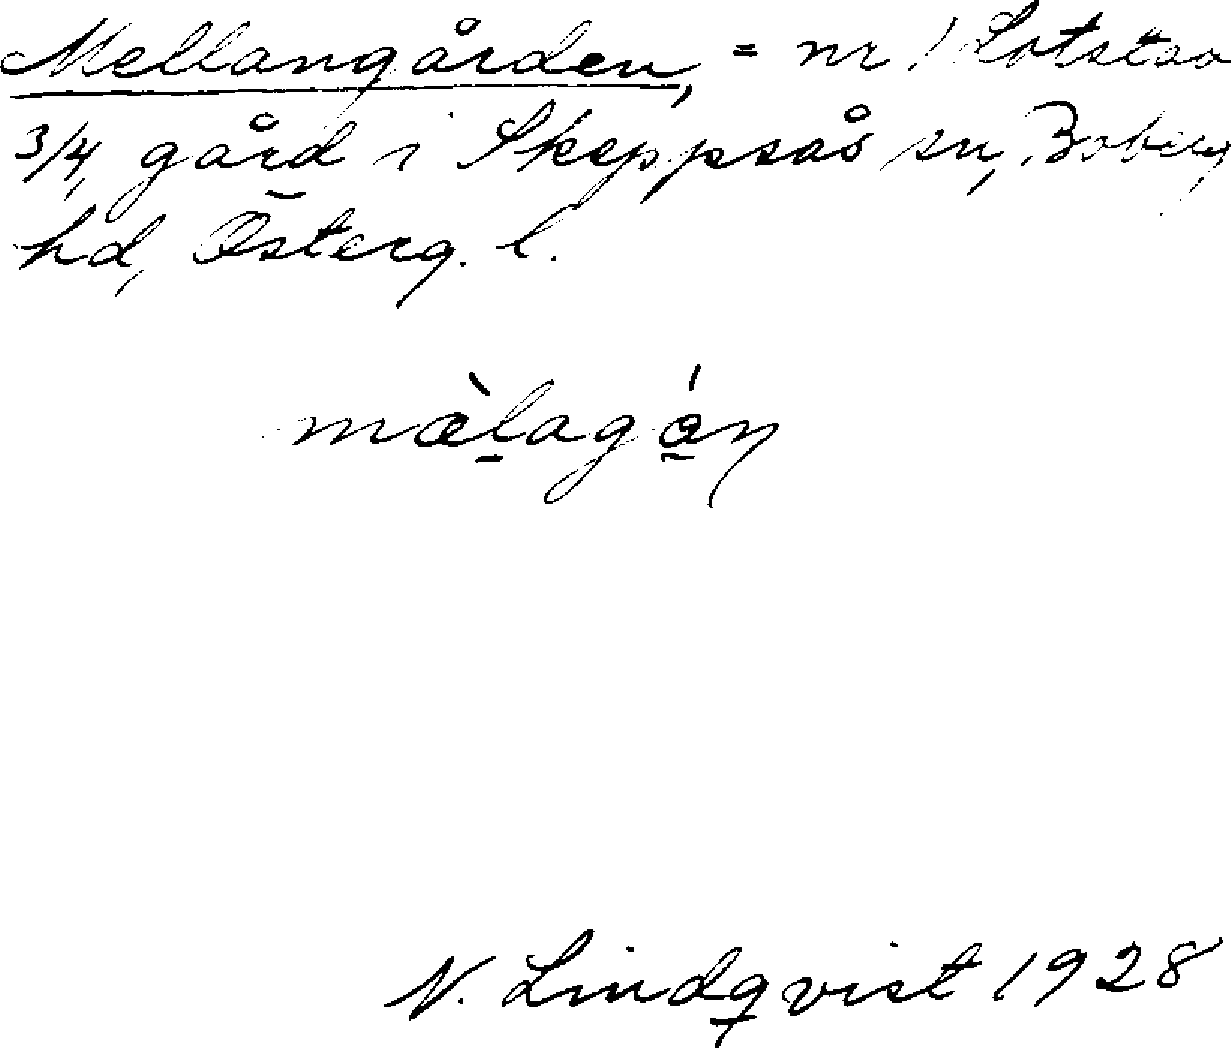 Mellangården, = nr 1 Lotstad
3/4, gård i Skeppsås sn, Boberg
hd, Österg. l.
mæ̀lagɑ́n
N. Lindqvist 1928